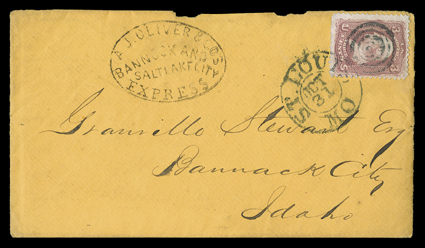 A. J. OLIVER & CO'S
BANNOCK AND
SALT LAKE CITY
EXPRESS
ST. LOUIS
OCT
31
MO
Granville Stewart Esq
Bannack City
Idaho